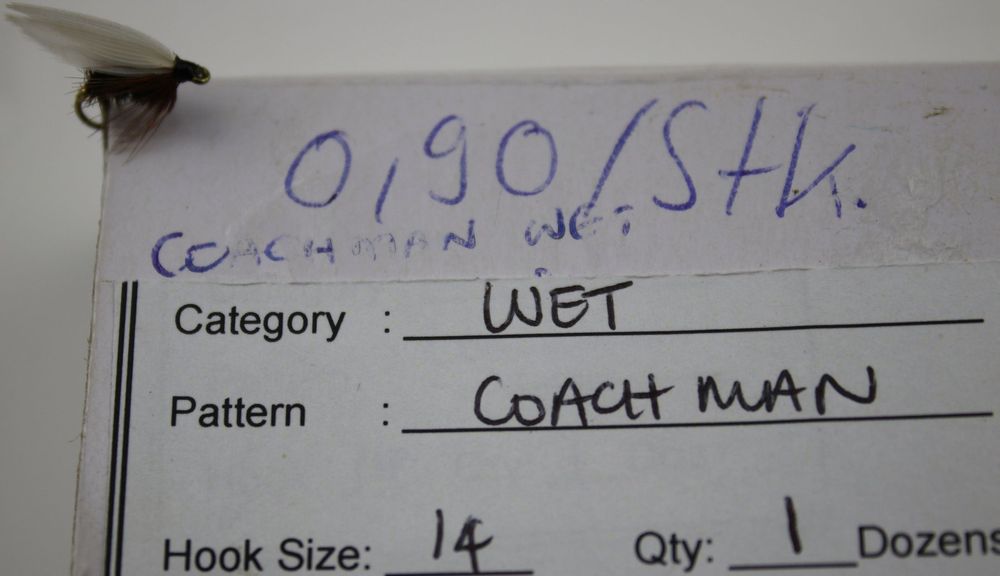 0,90/Stk.
COACHMAN WET
Category : WET
Pattern : COACHMAN
Hook Size: 14 Qty: 1 Dozens